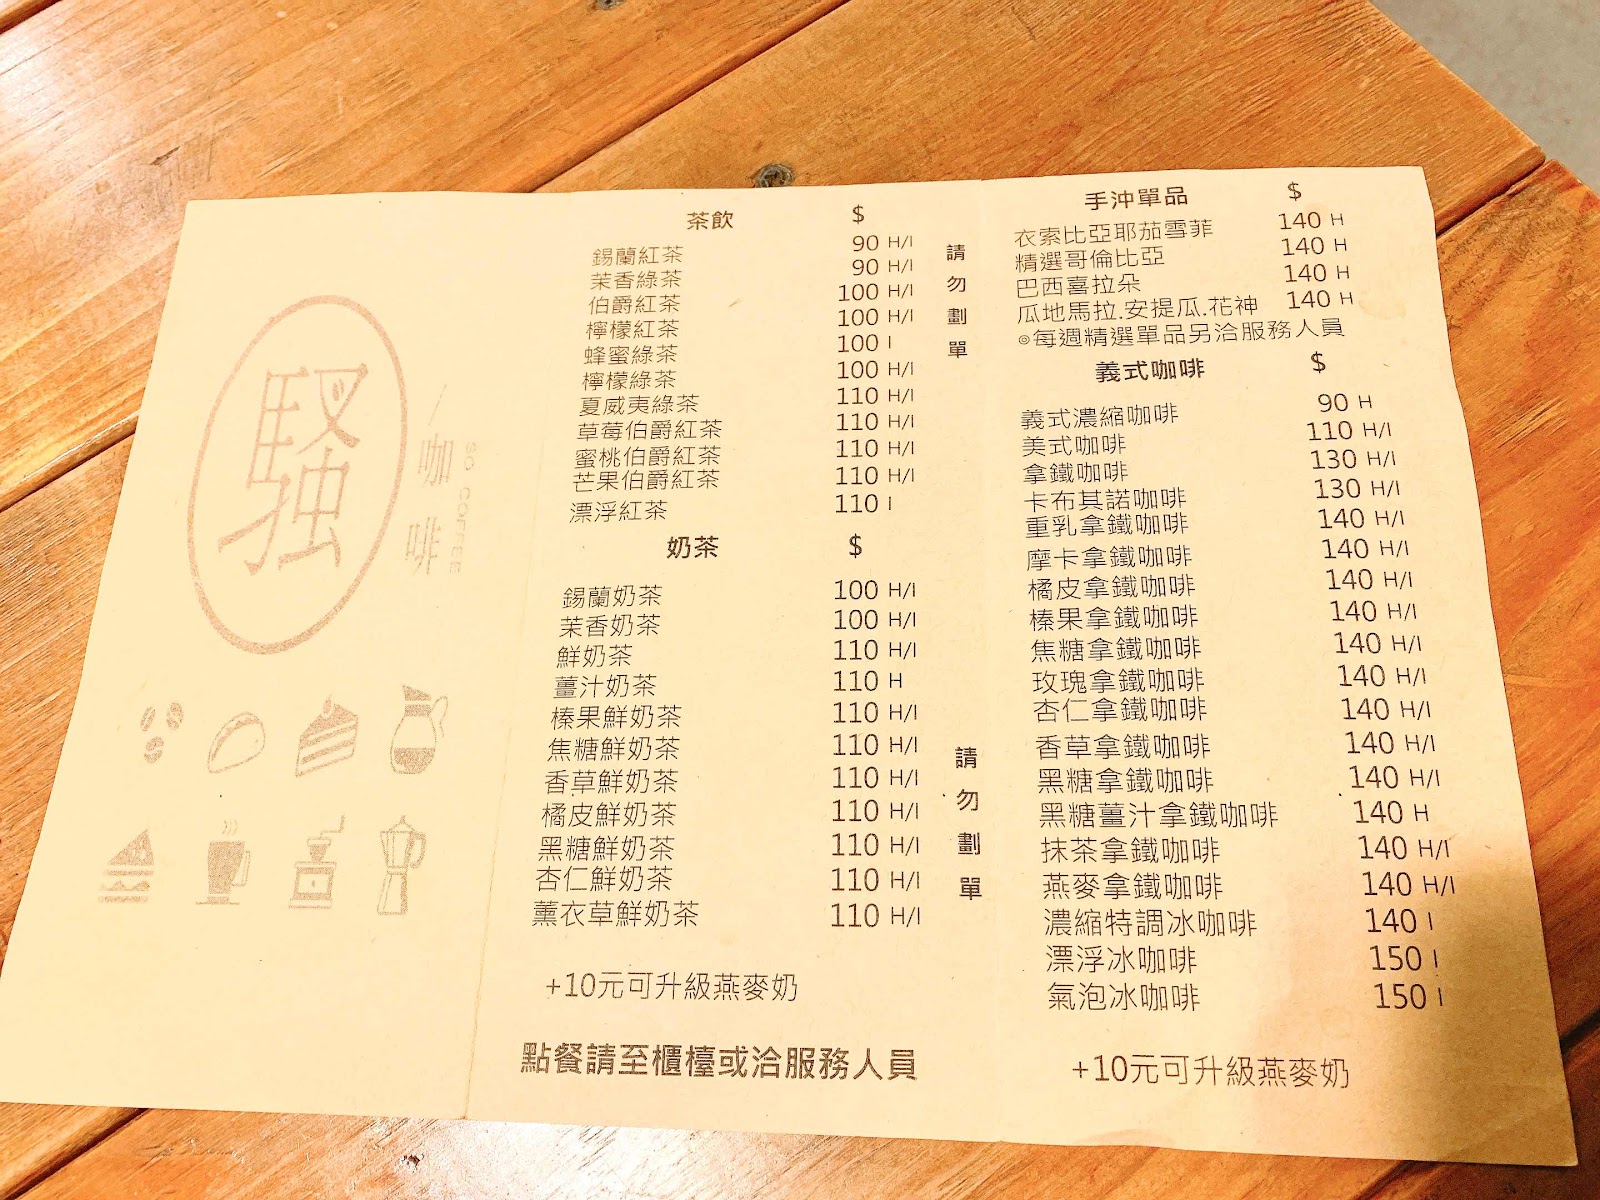 騷
咖啡
SO COFFEE
茶飲 $
錫蘭紅茶 90 H/I
茉香綠茶 90 H/I
伯爵紅茶 100 H/I
檸檬紅茶 100 H/I
蜂蜜綠茶 100 I
檸檬綠茶 100 H/I
夏威夷綠茶 110 H/I
草莓伯爵紅茶 110 H/I
蜜桃伯爵紅茶 110 H/I
芒果伯爵紅茶 110 H/I
漂浮紅茶 110 I
奶茶 $
錫蘭奶茶 100 H/I
茉香奶茶 100 H/I
鮮奶茶 110 H/I
薑汁奶茶 110 H
榛果鮮奶茶 110 H/I
焦糖鮮奶茶 110 H/I
香草鮮奶茶 110 H/I
橘皮鮮奶茶 110 H/I
黑糖鮮奶茶 110 H/I
杏仁鮮奶茶 110 H/I
薰衣草鮮奶茶 110 H/I
+10元可升級燕麥奶
點餐請至櫃檯或洽服務人員
請勿劃單
請勿劃單
手沖單品 $
衣索比亞耶茄雪菲 140 H
精選哥倫比亞 140 H
巴西喜拉朵 140 H
瓜地馬拉.安提瓜.花神 140 H
⊙每週精選單品另洽服務人員
義式咖啡 $
義式濃縮咖啡 90 H
美式咖啡 110 H/I
拿鐵咖啡 130 H/I
卡布其諾咖啡 130 H/I
重乳拿鐵咖啡 140 H/I
摩卡拿鐵咖啡 140 H/I
橘皮拿鐵咖啡 140 H/I
榛果拿鐵咖啡 140 H/I
焦糖拿鐵咖啡 140 H/I
玫瑰拿鐵咖啡 140 H/I
杏仁拿鐵咖啡 140 H/I
香草拿鐵咖啡 140 H/I
黑糖拿鐵咖啡 140 H/I
黑糖薑汁拿鐵咖啡 140 H
抹茶拿鐵咖啡 140 H/I
燕麥拿鐵咖啡 140 H/I
濃縮特調冰咖啡 140 I
漂浮冰咖啡 150 I
氣泡冰咖啡 150 I
+10元可升級燕麥奶